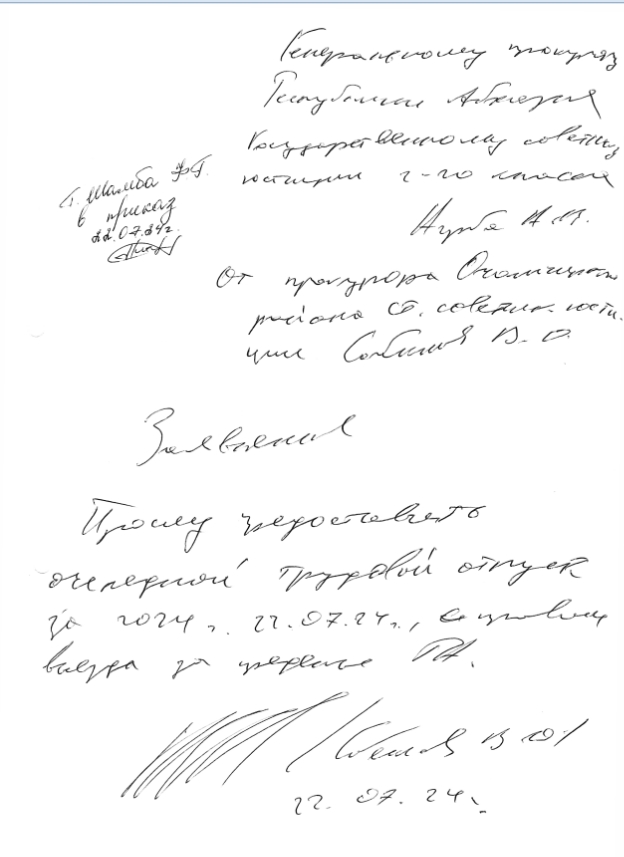 Генеральному прокурору
Республики Абхазия
Государственному советнику
юстиции 2-го класса
А. В.
г. Шамба Ф.Г.
в приказ
22.07.24г.
От прокурора Очамчирского
района ст. советник юсти
ции В. О.
Заявление
Прошу предоставить
очередной трудовой отпуск
за 2024 г. 22.07.24г., с правом
выезда за пределы РА.
В О
22. 07. 24г.